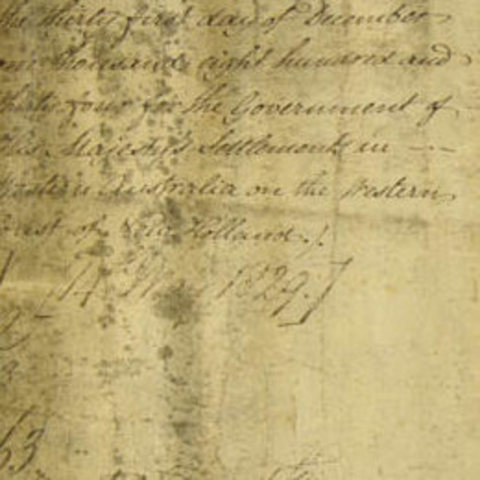 the thirty first day of December
one thousand eight hundred and
thirty four for the Government of
His Majesty's Settlements in
Western Australia on the Western
Coast of New Holland./.
14 May 1829.]
63